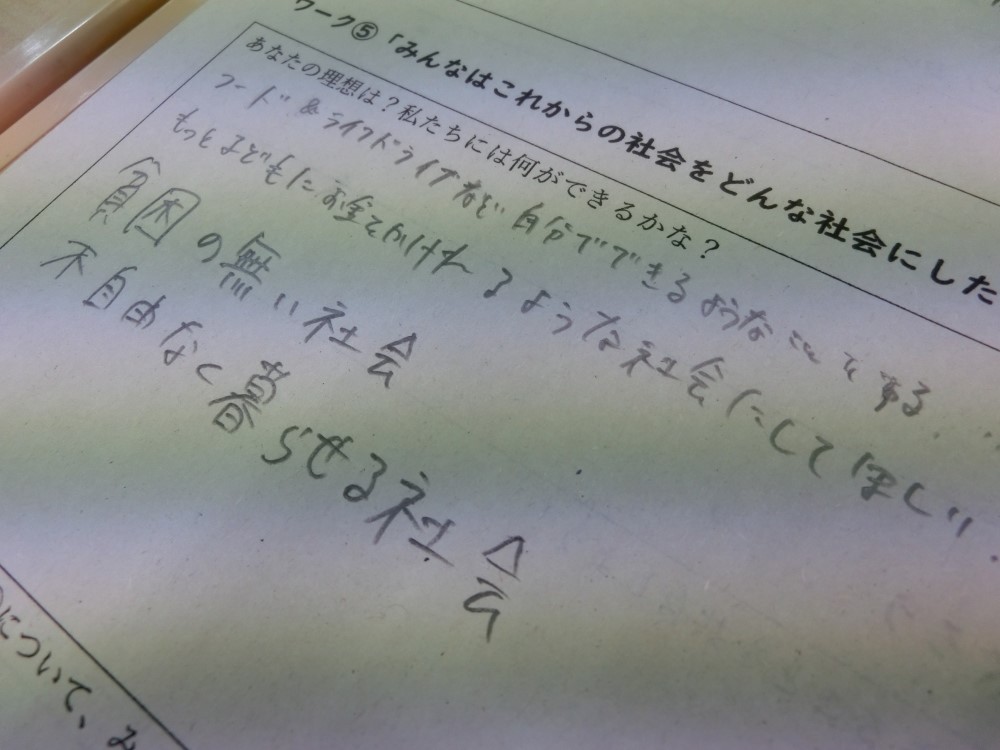 ワーク⑤「みんなはこれからの社会をどんな社会にした
あなたの理想は？私たちには何ができるかな？
フード&ライフドライブなど自分でできるようなことをする。
もっと子どもにお金をかけれるような社会にしてほしい。
貧困の無い社会
不自由なく暮らせる社会
について、み